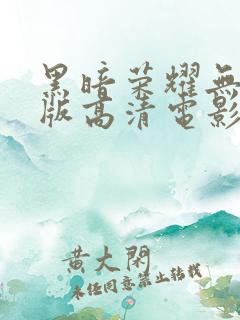 黑暗荣耀無
版高清電影
黄大閑
未经同意禁止转载